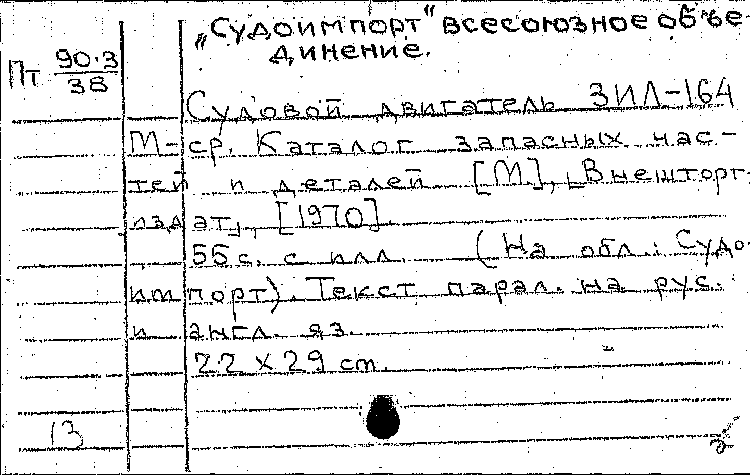 „Судоимпорт" всесоюзное объе-
динение.
Пт 90-3/38
Судовой двигатель ЗИЛ-164
М-ср. Каталог запасных час-
тей и деталей [М.], „Внешторг-
издат", [1970].
56 с. с илл. (На обл.: Судо-
импорт). Текст парал. на рус.
и англ. яз.
22 x 29 cm.
13